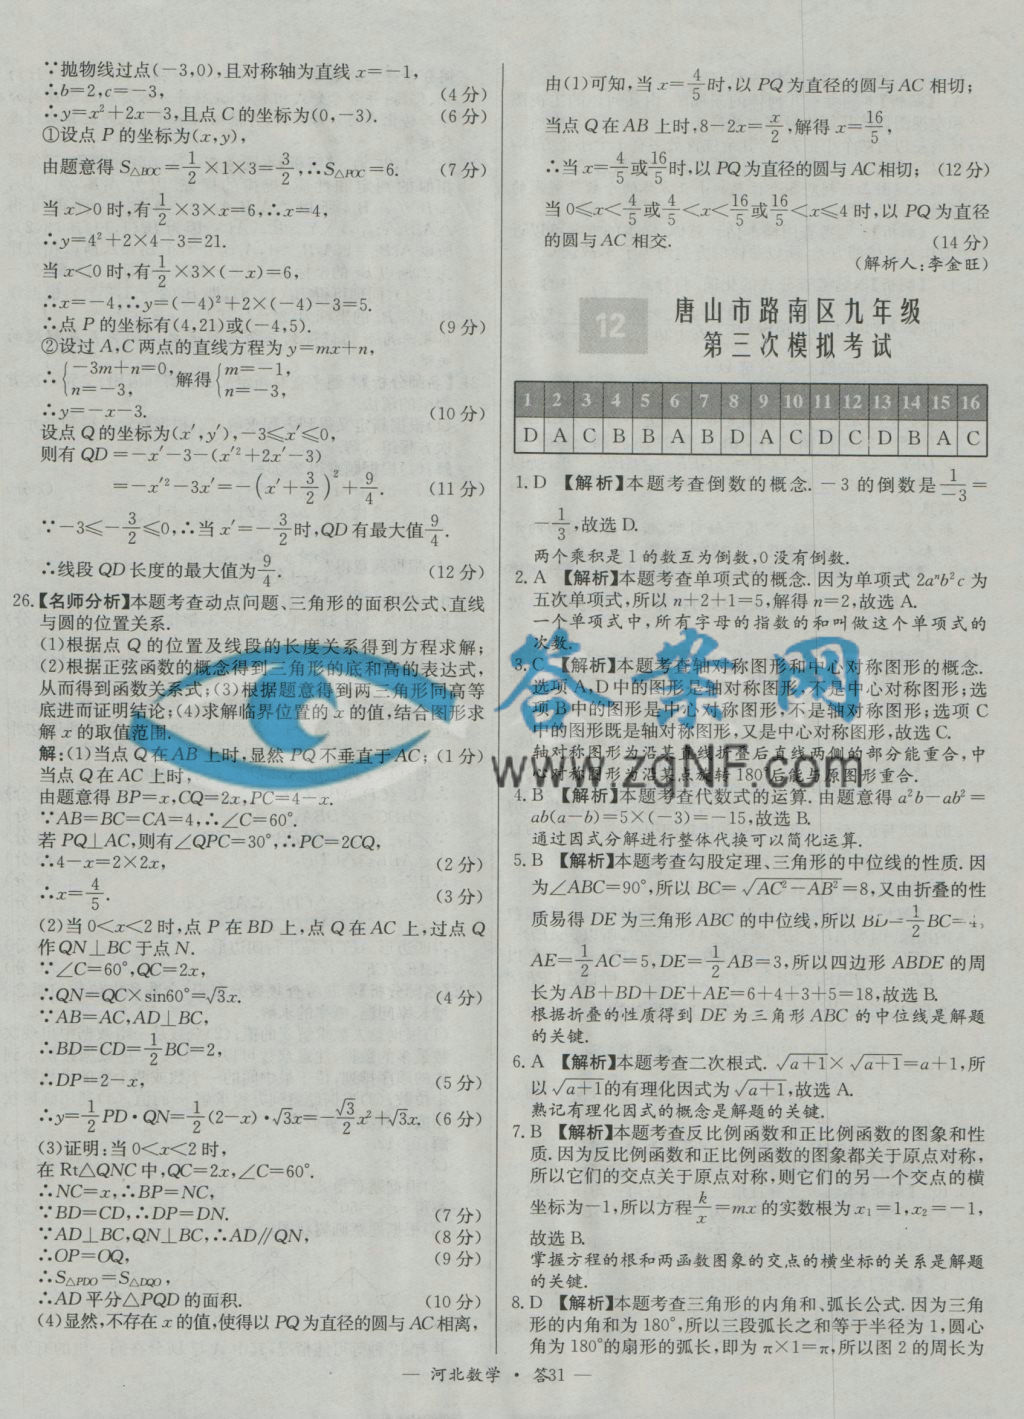 ∵抛物线过点(-3,0),且对称轴为直线 x=-1,
∴b=2,c=-3, (4 分)
∴y=x²+2x-3,且点 C 的坐标为(0,-3). (6 分)
①设点 P 的坐标为(x,y),
由题意得 S△BOC=1/2×1×3=3/2,∴S△POC=6. (7 分)
当 x>0 时,有1/2×3×x=6,∴x=4,
∴y=4²+2×4-3=21.
当 x<0 时,有1/2×3×(-x)=6,
∴x=-4,∴y=(-4)²+2×(-4)-3=5.
∴点 P 的坐标有(4,21)或(-4,5). (9 分)
②设过 A,C 两点的直线方程为 y=mx+n,
∴{-3m+n=0, n=-3, 解得{m=-1, n=-3,
∴y=-x-3. (10 分)
设点 Q 的坐标为(x′,y′),-3≤x′≤0,
则有 QD=-x′-3-(x′²+2x′-3)
=-x′²-3x′=-(x′+3/2)²+9/4. (11 分)
∵-3≤-3/2≤0,∴当 x′=-3/2时,QD 有最大值9/4.
∴线段 QD 长度的最大值为9/4. (12 分)
26.【名师分析】本题考查动点问题、三角形的面积公式、直线
与圆的位置关系.
(1)根据点 Q 的位置及线段的长度关系得到方程求解;
(2)根据正弦函数的概念得到三角形的底和高的表达式,
从而得到函数关系式;(3)根据题意得到两三角形同高等
底进而证明结论;(4)求解临界位置的 x 的值,结合图形求
解 x 的取值范围.
解:(1)当点 Q 在 AB 上时,显然 PQ 不垂直于 AC; (1 分)
当点 Q 在 AC 上时,
由题意得 BP=x,CQ=2x,PC=4-x.
∵AB=BC=CA=4,∴∠C=60°.
若 PQ⊥AC,则有∠QPC=30°,∴PC=2CQ,
∴4-x=2×2x, (2 分)
∴x=4/5. (3 分)
(2)当 0<x<2 时,点 P 在 BD 上,点 Q 在 AC 上,过点 Q
作 QN⊥BC 于点 N.
∵∠C=60°,QC=2x,
∴QN=QC×sin60°=√3x. (4 分)
∵AB=AC,AD⊥BC,
∴BD=CD=1/2BC=2,
∴DP=2-x, (5 分)
∴y=1/2PD·QN=1/2(2-x)·√3x=-√3/2x²+√3x. (6 分)
(3)证明:当 0<x<2 时,
在 Rt△QNC 中,QC=2x,∠C=60°.
∴NC=x,∴BP=NC,
∵BD=CD,∴DP=DN. (7 分)
∵AD⊥BC,QN⊥BC,∴AD∥QN, (8 分)
∴OP=OQ, (9 分)
∴S△PDO=S△DQO,
∴AD 平分△PQD 的面积. (10 分)
(4)显然,不存在 x 的值,使得以 PQ 为直径的圆与 AC 相离,
由(1)可知,当 x=4/5时,以 PQ 为直径的圆与 AC 相切;
当点 Q 在 AB 上时,8-2x=x/2,解得 x=16/5,
∴当 x=4/5或16/5时,以 PQ 为直径的圆与 AC 相切; (12 分)
当 0≤x<4/5或4/5<x<16/5或16/5<x≤4 时,以 PQ 为直径
的圆与 AC 相交. (14 分)
(解析人:李金旺)
12
唐山市路南区九年级
第三次模拟考试
1 2 3 4 5 6 7 8 9 10 11 12 13 14 15 16
D A C B B A B D A C D C D B A C
1. D 【解析】本题考查倒数的概念. -3 的倒数是1/-3=
-1/3,故选 D.
两个乘积是 1 的数互为倒数,0 没有倒数.
2. A 【解析】本题考查单项式的概念. 因为单项式 2aⁿb²c 为
五次单项式,所以 n+2+1=5,解得 n=2,故选 A.
一个单项式中,所有字母的指数的和叫做这个单项式的
次数.
3. C 【解析】本题考查轴对称图形和中心对称图形的概念.
选项 A,D 中的图形是轴对称图形,不是中心对称图形;选
项 B 中的图形是中心对称图形,不是轴对称图形;选项 C
中的图形既是轴对称图形,又是中心对称图形,故选 C.
轴对称图形为沿某直线折叠后直线两侧的部分能重合,中
心对称图形为沿某点旋转 180°后能与原图形重合.
4. B 【解析】本题考查代数式的运算. 由题意得 a²b-ab²=
ab(a-b)=5×(-3)=-15,故选 B.
通过因式分解进行整体代换可以简化运算.
5. B 【解析】本题考查勾股定理、三角形的中位线的性质. 因
为∠ABC=90°,所以 BC=√AC²-AB²=8,又由折叠的性
质易得 DE 为三角形 ABC 的中位线,所以 BD=1/2BC=4,
AE=1/2AC=5,DE=1/2AB=3,所以四边形 ABDE 的周
长为 AB+BD+DE+AE=6+4+3+5=18,故选 B.
根据折叠的性质得到 DE 为三角形 ABC 的中位线是解题
的关键.
6. A 【解析】本题考查二次根式. √a+1×√a+1=a+1,所
以√a+1的有理化因式为√a+1,故选 A.
熟记有理化因式的概念是解题的关键.
7. B 【解析】本题考查反比例函数和正比例函数的图象和性
质. 因为反比例函数和正比例函数的图象都关于原点对称,
所以它们的交点关于原点对称,则它们的另一个交点的横
坐标为-1,所以方程k/x=mx 的实数根为 x₁=1,x₂=-1,
故选 B.
掌握方程的根和两函数图象的交点的横坐标的关系是解题
的关键.
8. D 【解析】本题考查三角形的内角和、弧长公式. 因为三角
形的内角和为 180°,所以三段弧长之和等于半径为 1,圆心
角为 180°的扇形的弧长,即为 π×1=π,所以图 2 的周长为
— 河北数学 · 答31 —
答案网
www.zqNF.com